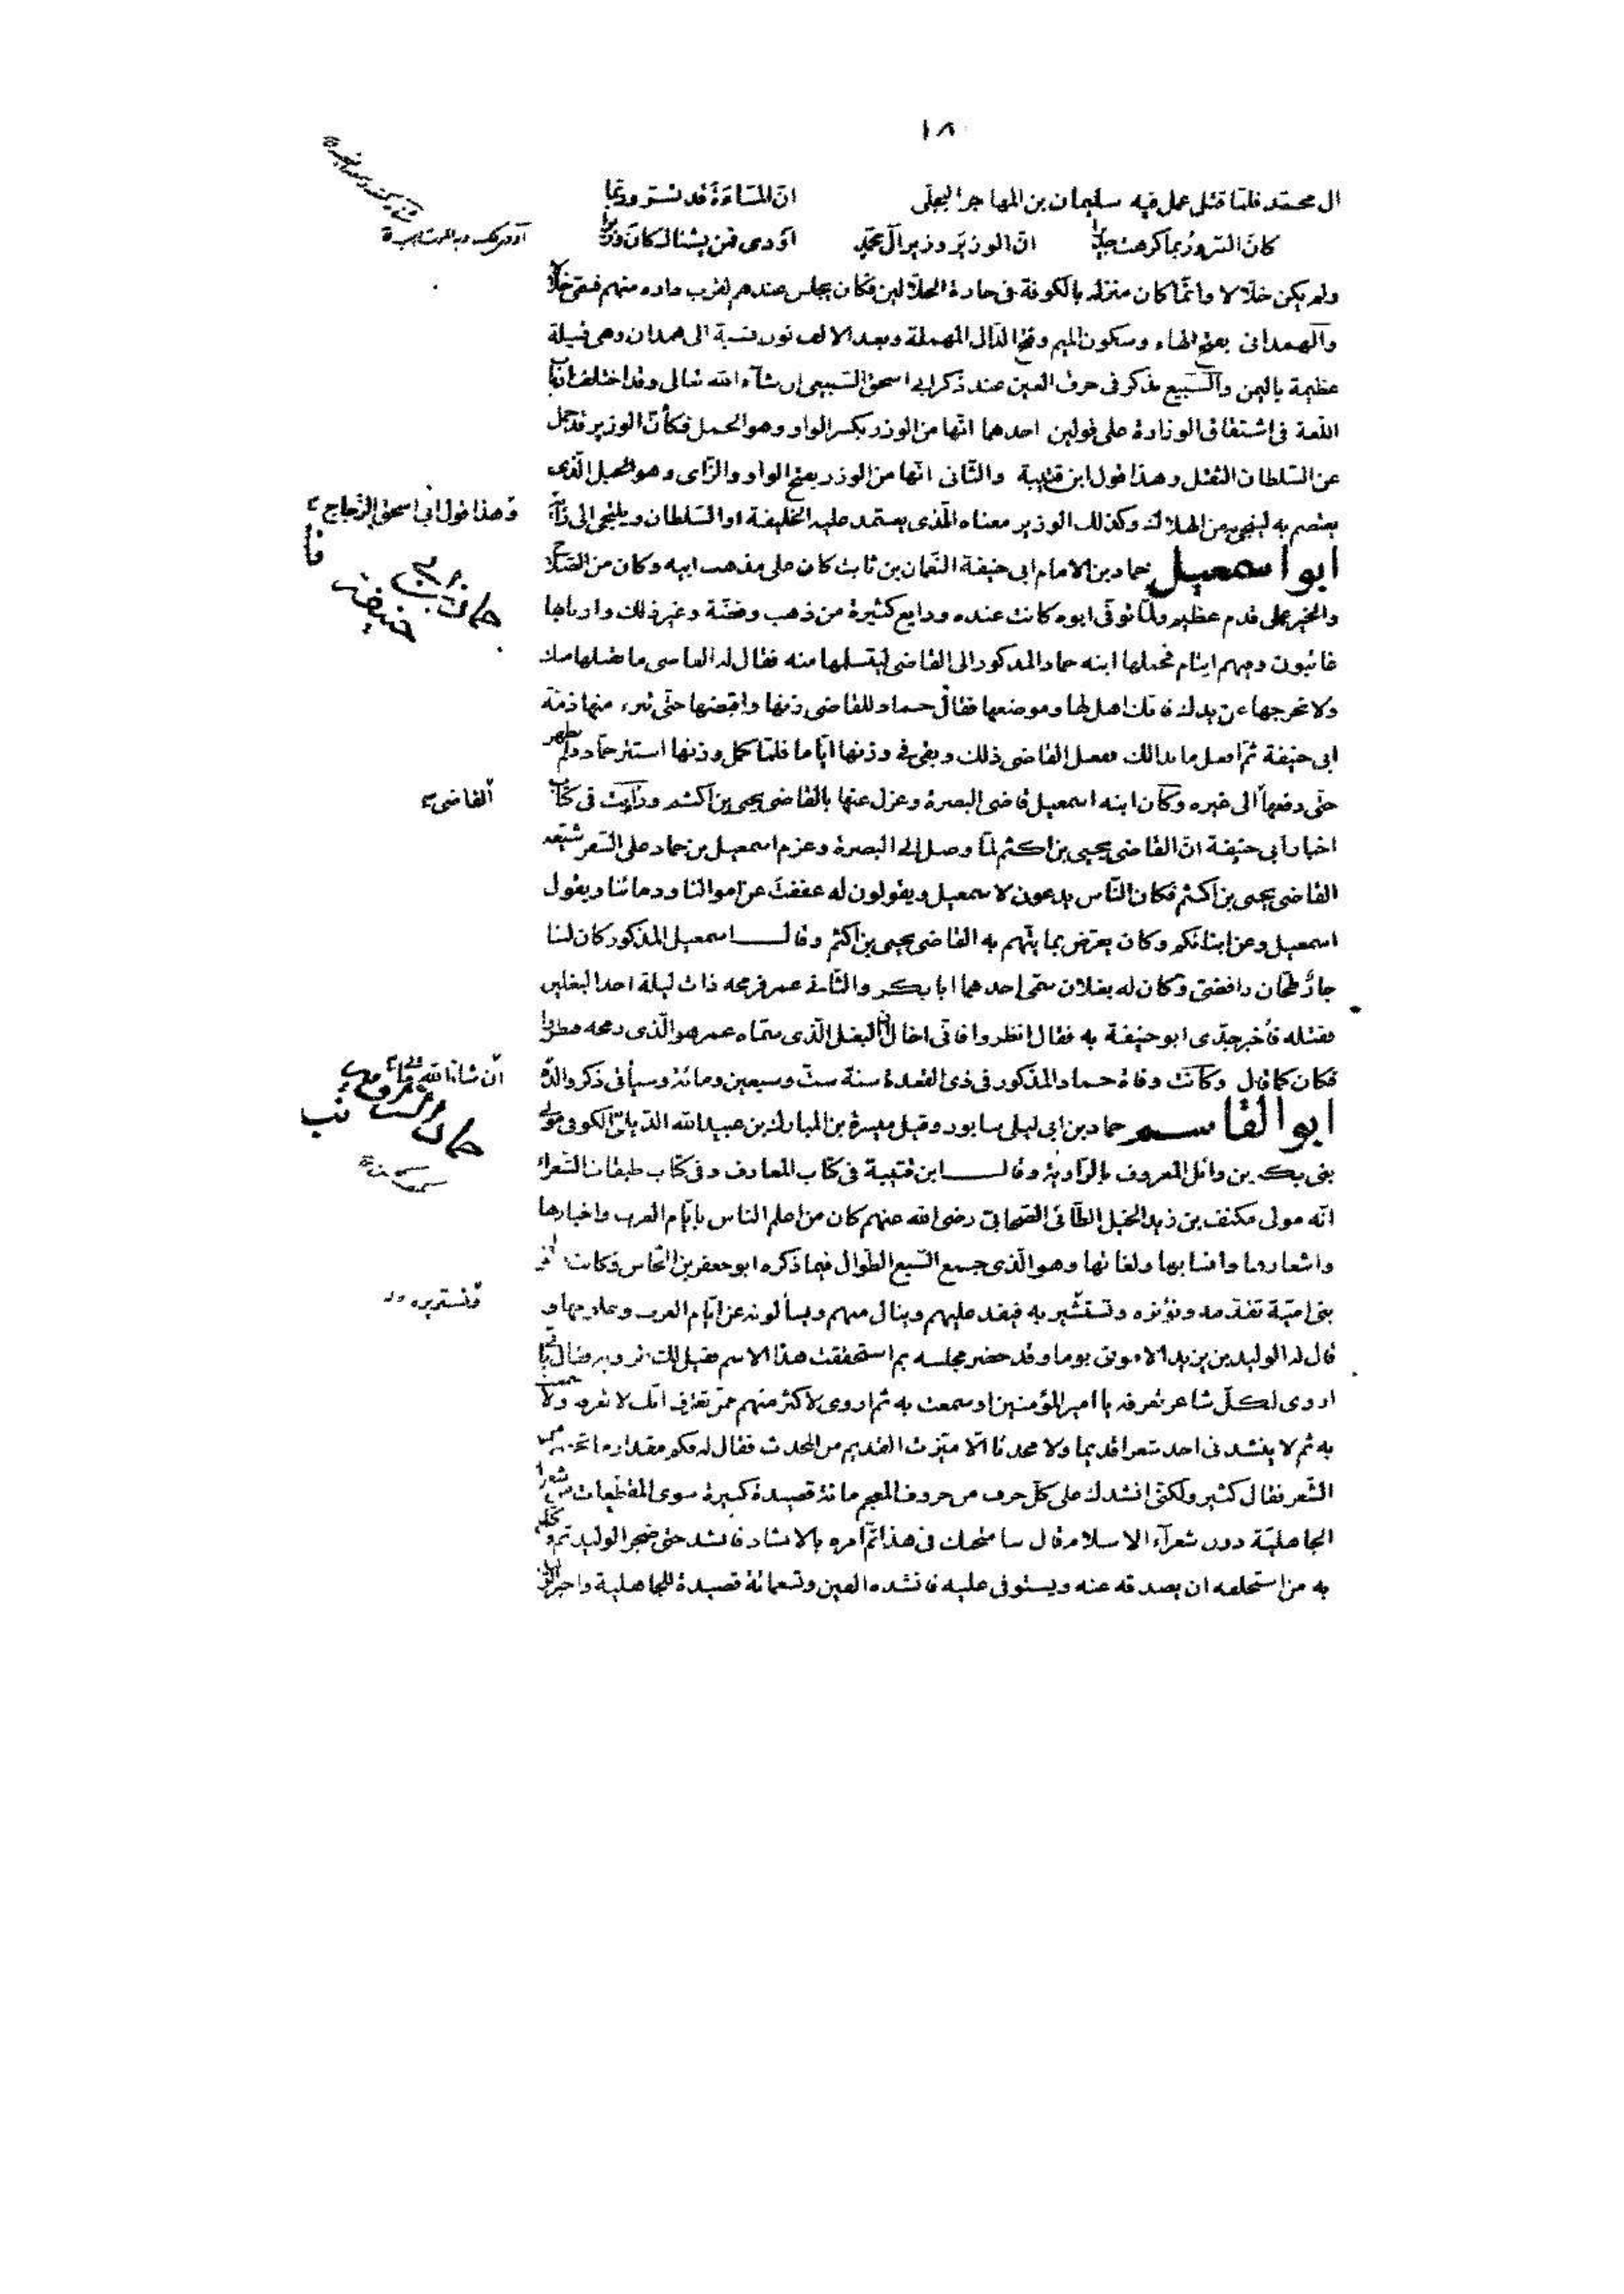 ١٨
ال محمّد فلمّا قتل عمل فيه سليمان بن المهاجر البجلى انّ المساءة قد تسرّ وربّما
كان السرور بما كرهت جديرا انّ الوزير وزير آل محمّد اودى فمن يشناك كان وزيرا
ولم يكن خلّالا وانّما كان منزله بالكوفة فى حارة الخلّالين فكان يجلس عندهم لقرب داره منهم فسمّى خلّالا
والهمدانى بفتح الهاء وسكون الميم وفتح الدّال المهملة وبعد الالف نون نسبة الى همدان وهى قبيلة
عظيمة باليمن والسّبيع يذكر فى حرف العين عند ذكر ابى اسحق السّبيعى ان شاء الله تعالى وقد اختلف ارباب
اللّغة فى اشتقاق الوزارة على قولين احدهما انّها من الوزر بكسر الواو وهو الحمل فكأنّ الوزير قد حمل
عن السّلطان الثقل وهذا قول ابن قتيبة والثّانى انّها من الوزر بفتح الواو والزّاى وهو الجبل الّذى
يعتصم به لينجى به من الهلاك وكذلك الوزير معناه الّذى يعتمد عليه الخليفة او السّلطان ويلتجى الى رأيه
وهذا قول ابى اسحق الزّجاج
ابو اسمعيل حماد بن الامام ابى حنيفة النّعمان بن ثابت كان على مذهب ابيه وكان من الصّلاح
والخير على قدم عظيم ولمّا توفّى ابوه كانت عنده ودايع كثيرة من ذهب وفضّة وغير ذلك واربابها
غائبون وفيهم ايتام فحملها ابنه حماد المذكور الى القاضى ليتسلمها منه فقال له القاضى ما نقبلها منك
ولا نخرجها عن يدك فانك اهل لها وموضعها فقال حماد للقاضى زنها واقبضها حتّى تبرء منها ذمّة
ابى حنيفة ثمّ افعل ما بدا لك ففعل القاضى ذلك وبقى فى وزنها ايّاما فلمّا كمل وزنها استتر حمّاد ولم يظهر
حتّى دفعها الى غيره وكان ابنه اسمعيل قاضى البصرة وعزل عنها بالقاضى يحيى بن اكثم ورأيت فى كتاب
القاضى
اخبار ابى حنيفة انّ القاضى يحيى بن اكثم لمّا وصل الى البصرة وعزم اسمعيل بن حماد على السّفر شيّعه
القاضى يحيى بن اكثم فكان النّاس يدعون لاسمعيل ويقولون له عففت عن اموالنا ودمائنا ويقول
اسمعيل وعن ابنائكم وكان يعرّض بما يتّهم به القاضى يحيى بن اكثم وقال اسمعيل المذكور كان لنا
جار طحّان رافضىّ وكان له بغلان سمّى احدهما ابا بكر والثّانى عمر فرمحه ذات ليلة احد البغلين
فقتله فأخبر جدّى ابو حنيفة به فقال انظروا فانّى اخال انّ البغل الّذى سمّاه عمر هو الّذى رمحه فنظروا
فكان كما قال وكانت وفاة حماد المذكور فى ذى القعدة سنة ستّ وسبعين ومائة وسيأتى ذكر والده
ان شاء الله تعالى
ابو القاسم حماد بن ابى ليلى سابور وقيل ميسرة بن المبارك بن عبيد الله الدّيلمىّ الكوفى مولى
بنى بكر بن وائل المعروف بالرّاوية وقال ابن قتيبة فى كتاب المعارف وفى كتاب طبقات الشّعراء
انّه مولى مكنف بن زيد الخيل الطّائى الصّحابىّ رضى الله عنهم كان من اعلم الناس بايّام العرب واخبارها
واشعارها وانسابها ولغاتها وهو الّذى جمع السّبع الطّوال فيما ذكره ابو جعفر بن النّحاس وكانت
بنى اميّة تقدّمه وتؤثره وتستشير به فيفد عليهم وينال منهم ويسألونه عن ايّام العرب وعلومها و
قال له الوليد بن يزيد الاموىّ يوما وقد حضر مجلسه بم استحققت هذا الاسم فقيل لك فقال
اروى لكلّ شاعر تعرفه يا امير المؤمنين او سمعت به ثم اروى لاكثر منهم ممّن تعترف انّك لا تعرفه ولا
به ثم لا ينشدنى احد شعرا قديما ولا محدثا الّا ميّزت القديم من المحدث فقال له فكم مقدار ما تحفظ من
الشّعر فقال كثير ولكنّى انشدك على كلّ حرف من حروف المعجم مائة قصيدة كبيرة سوى المقطّعات من شعر
الجاهليّة دون شعرآء الاسلام قال سامتحنك فى هذا ثمّ امره بالانشاد فانشد حتى ضجر الوليد ثم وكّل
به من استحلفه ان يصدقه عنه ويستوفى عليه فانشده الفين وتسعمائة قصيدة للجاهلية واخبر